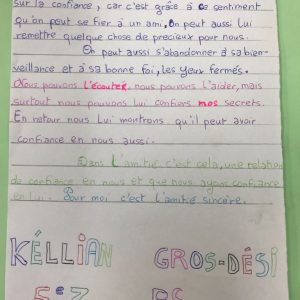 sur la confiance, car c'est grâce à ce sentiment
qu'on peut se fier à un ami. On peut aussi lui
remettre quelque chose de precieux pour nous.
On peut aussi s'abandonner à sa bien-
veillance et à sa bonne foi, les yeux fermés.
Nous pouvons l'écouter, nous pouvons l'aider, mais
surtout nous pouvons lui confiers nos secrets.
En retour nous lui montrons qu'il peut avoir
confiance en nous aussi.
Dans l'amitié c'est cela, une relation
de confiance en nous et que nous ayons confiance
en lui. Pour moi c'est l'amitié sincère.
KÉLLIAN GROS-DÉSI
5e7